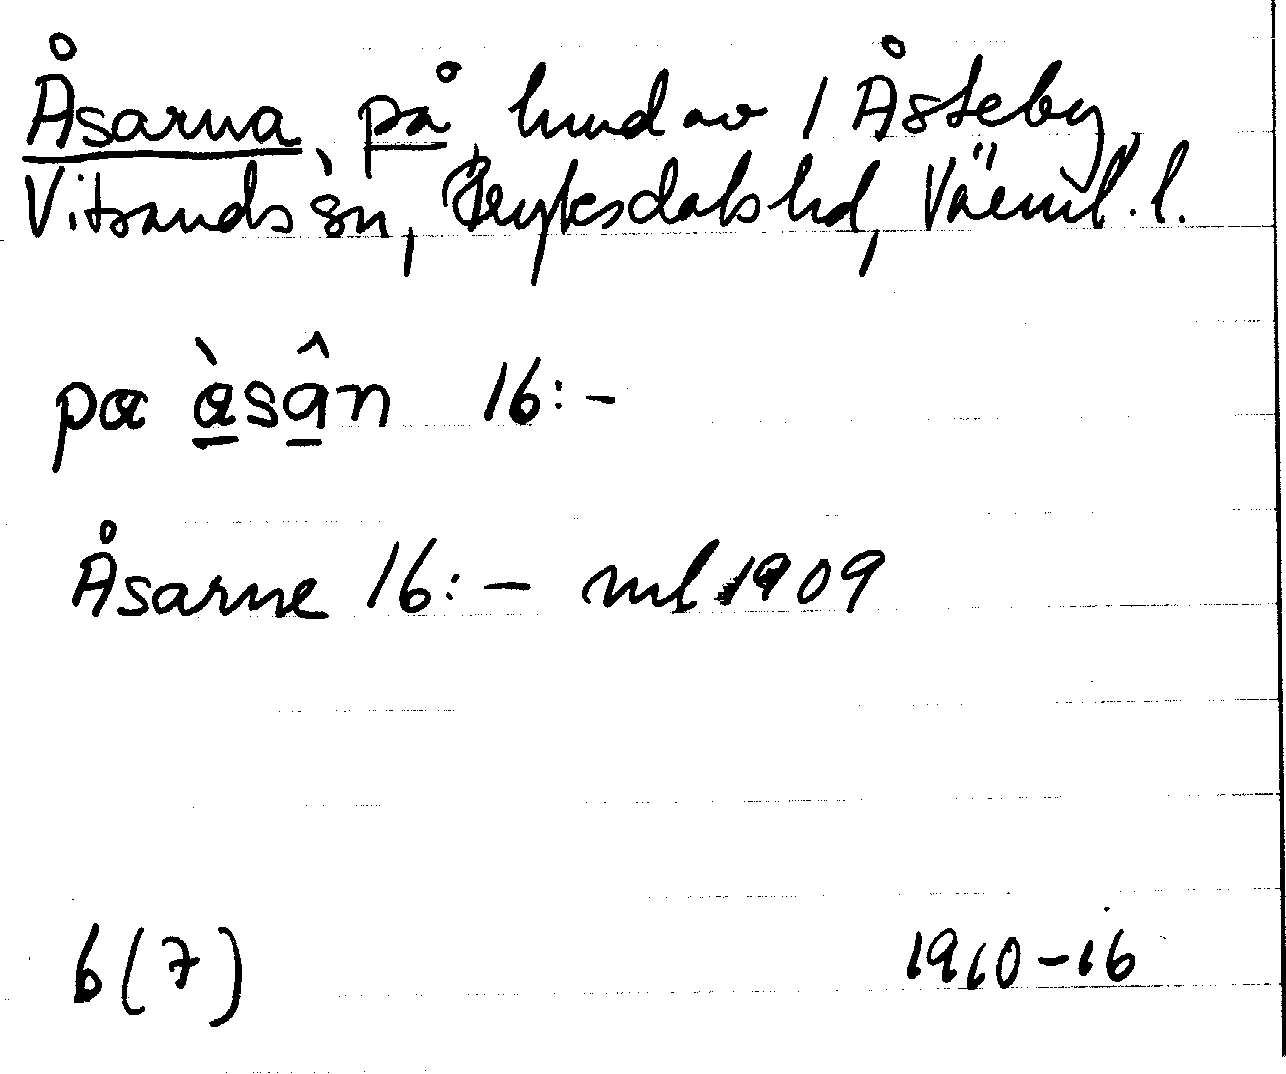 Åsarna, på hmd av 1 Åsteby,
Vitsands sn, Fryksdals hd, Värml. l.
pa àsân 16:-
Åsarne 16:- ml 1909
6(7) 1910-16